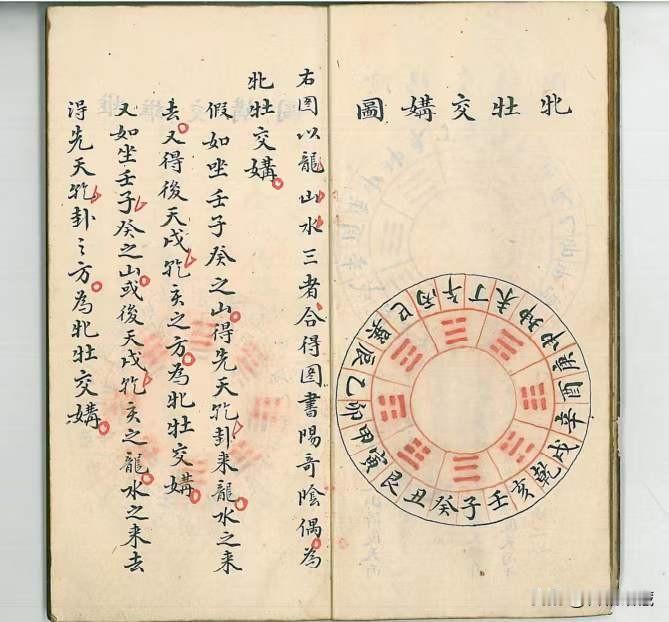 牝牡交媾圖
午丁未坤申庚酉辛戌乾亥壬子癸丑艮寅甲卯乙辰巽巳丙
右图以龍山水三者合得图書陽奇陰偶為
牝牡交媾
假如坐壬子癸之山得先天乹卦来龍水之来
去又得後天戌乹亥之方為牝牡交媾
又如坐壬子癸之山或後天戌乹亥之龍水之来去
得先天乹卦之方為牝牡交媾